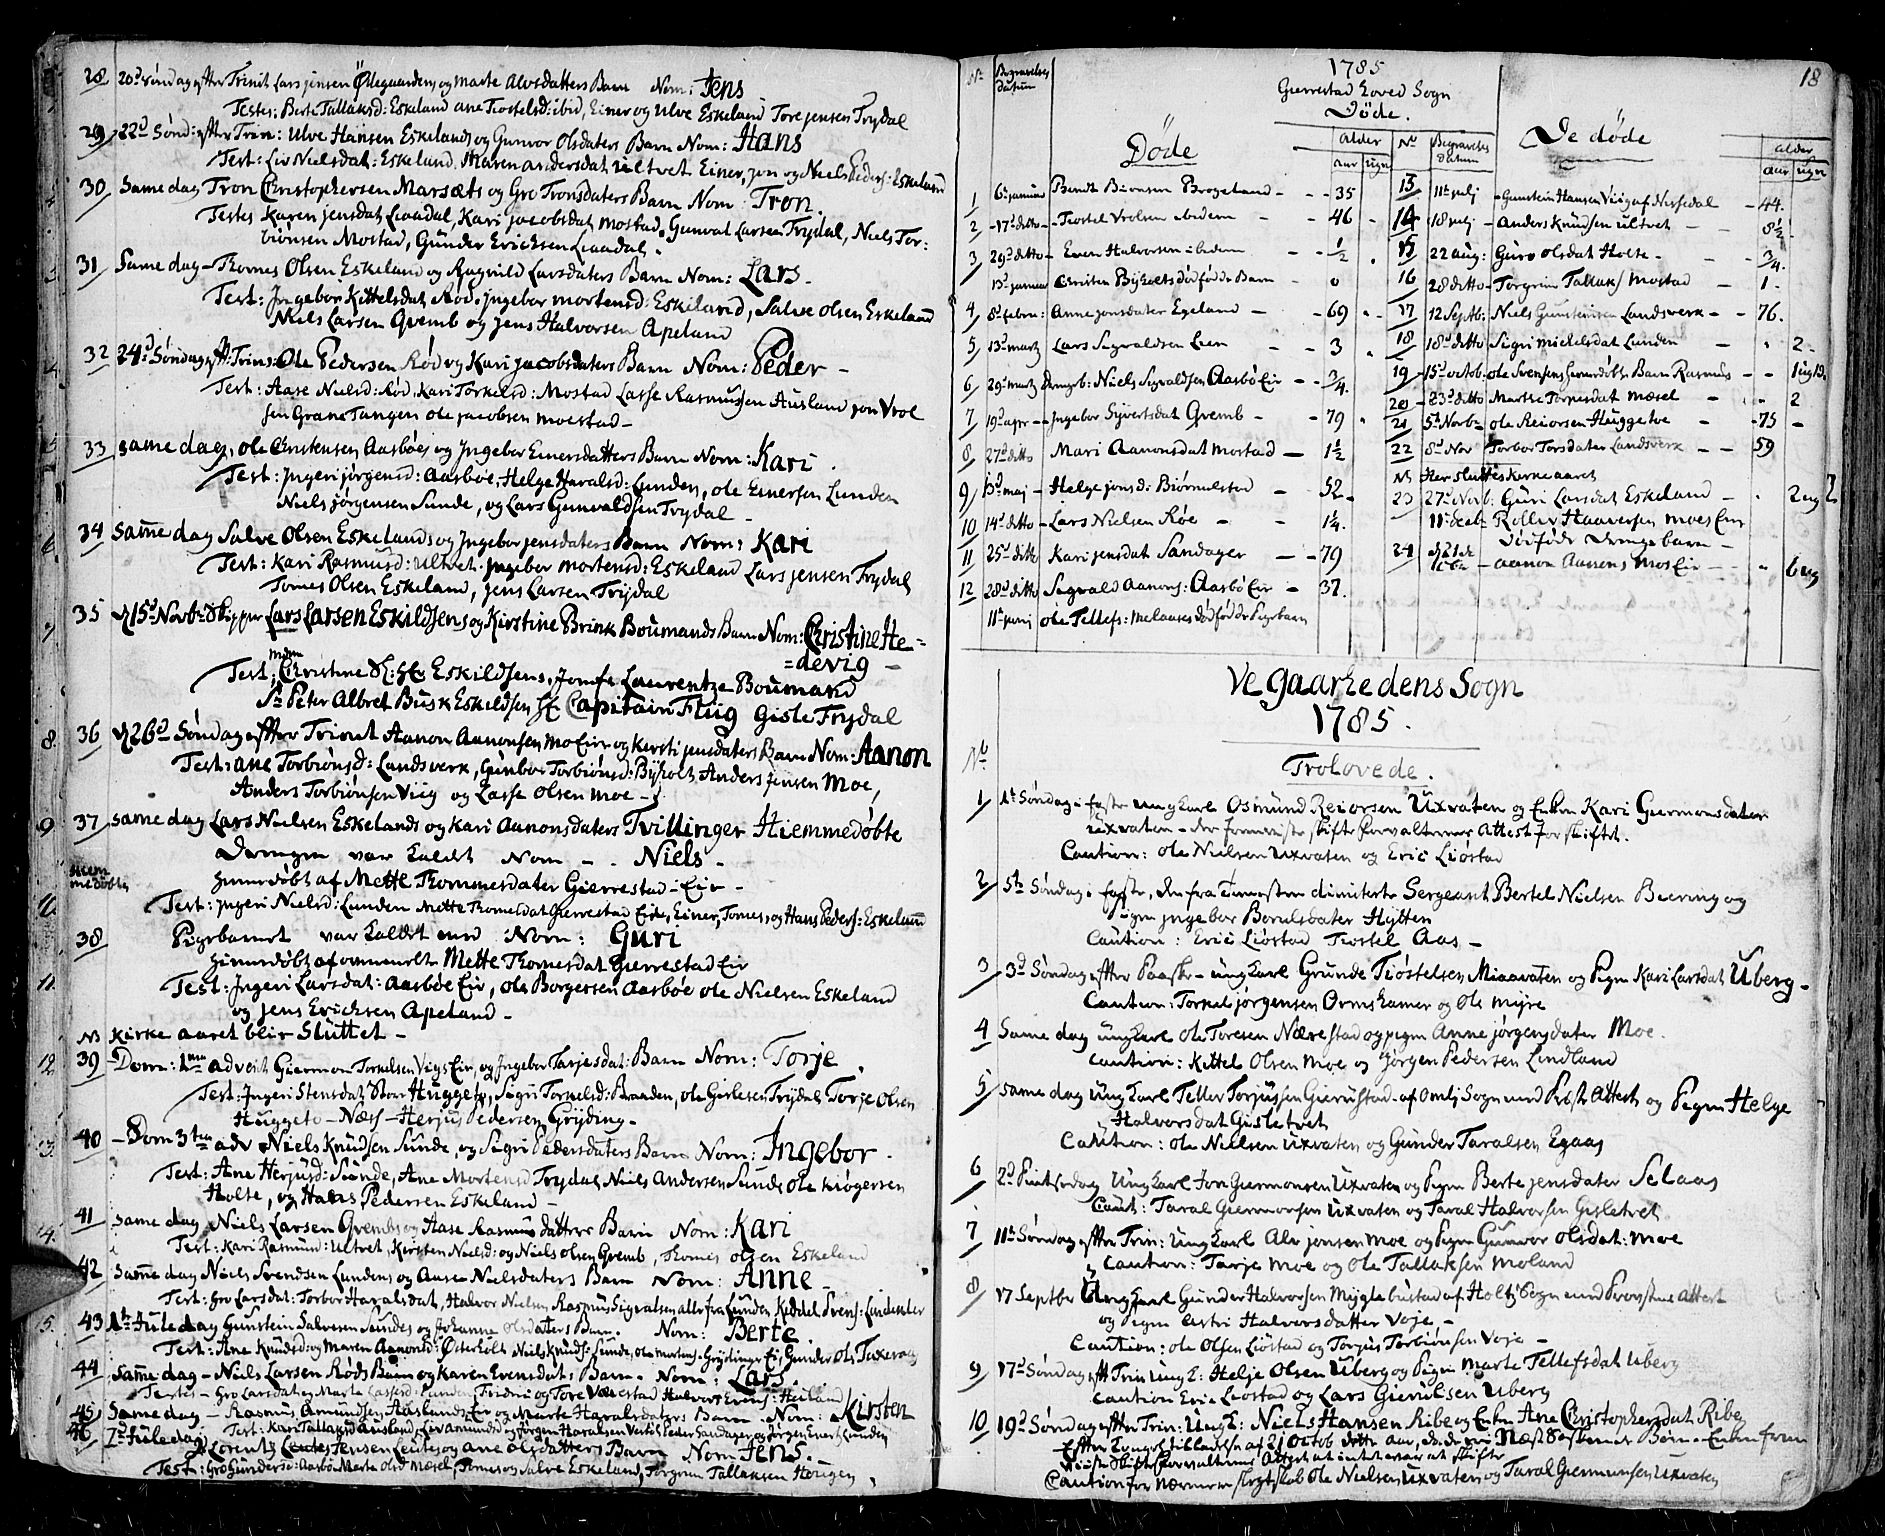 28 20d Søndag effter Trinit Lars jensen Ødegaardens og Marte Alvsdatters Barn Nom: Jens
Testes: Berte Tallaksd: Eskeland ane Tiostelsd: ibid, Einer og Ulve Eskeland Tore jensen Trydal
29 22d Sønd: effter Trin: Ulve Hansen Eskelands og Gunvor Olsdaters Barn Nom: Hans
Test: Liv Nielsdat: Eskeland, Maren andersdat ultvet Einer, jen og Niels Peders: Eskeland
30 Same dag Tron Christophersen Marsæts og Gro Tronsdaters Barn Nom: Tron
Testes Karen jensdat Liaadal, Kari jacobsdat Mostad, Gunval Larsen Trydal, Niels Tor:
biønsen Mostad, Gunder Erichsen Liaadal.
31 Same dag Thomes Olsen Eskeland og Ragnild Larsdaters Barn Nom: Lars
Test: Ingebor Kittelsdat Røds, Ingebor mortensd: Eskeland, Salve Olsen Eskeland
Niels Larsen Gremb og Jens Halvorsen Apeland
32 24d Søndag efft: Trin: Ole Pedersen Rød og Kari jacobsdaters Barn Nom: Peder
Test: Aase Nielsd: Rød, Kari Torkelsd: Mostad Lasse Rasmussen Ausland jon Vroe
sen Grane Tangen ole jacobsen moestad
33 Same dag, ole Christensen Aasbøes og Ingebor Einersdatters Barn Nom: Kari
Test: Ingeri jørgensd: Aasbøe, Helge Haralsd: Lunden, ole Einersen Lunden
Niels jørgensen Sunde, og Lars Gunvaldsen Trydal
34 Same dag Salve Olsen Eskelands og Ingebor jensdaters Barn Nom: Kari
Test: Kari Rasmusd: ultvet. Ingebor mortensd: Eskeland Lars jensen Trydal
Tomes Olsen Eskeland, Jens Larsen Trydal
35 d 15d Novbr Skipper Lars Larsen Eskildsens og Kirstine Brink Boumands Barn Nom: Christine He=
=devig
Test: Christine Eskildsens, Jomfr Laurentze Boumand
Sr Peter Albret Busk Eskildsen Hr Capitain Flug Gisle Trydal
36 d 26d Søndag effter Trinet Aanon Aanonsen Mo Eie og Kersti jensdaters Barn Nom: Aanon
Test: ane Torbiønsd: Landsverk, Gunbor Torbiønsd: Byholt Anders jensen Moe,
Anders Torbiønsen Vieg og Lasse Olsen Moe
37 Same dag Lars Nielsen Eskelands og Kari Aanonsdaters Tvillinger Hiemmedøbte
Drengen var kaldet Nom Niels
Hiemmedøbt af Mette Thommesdater Gierrestad Eie
Test: Ingeri Nielsd: Lunden Mette Tromesdat Gierrestad Eie, Einer, Tomes, og Hans Peders: Eskeland
38 Pigebarnet var kaldet med Nom: Guri
Hiemmedøbt af ommeldte Mette Thomesdat Gierrestad Eie
Test: Ingeri Larsdat: Aasbøe Eie, ole Borgersen Aasbøe ole Nielsen Eskeland
og Jens Erichsen Apeland
NB Kirke aaret blir Sluttet
39 Dom: 1ma advent Giermon Torkelsen Vigs Eie, og Ingebor Tarjesdat: Barn Nom: Torje
Test: Ingeri Stensdat Huggetv, Sigri Torkelsd: Braaden, ole Gislesen Trydal Torje Olsen
Huggeto Næs Herjus Pedersen Gryding
40 Dom 3tia adv Niels Knudsen Sunde, og Sigri Pedersdaters Barn Nom: Ingebor
Test: Ane Herjusd: Sunde, Ane Mortensd Trydal Niels Andersen Sunde ole Kiøgersen
Holte, og Hans Pedersen Eskeland
41 Same dag Niels Larsen Grembs og Aase Rasmusdatters Barn Nom: Kari
Test: Kari Rasmusd: Ultvet, Kirsten Nielsd: og Niels olsen Gremb, Thomes olsen Eskeland
42 Same dag Niels Svendsen Lundens og Aase Nielsdaters Barn Nom: Anne
Test: Gro Larsdat: Torbor Haralsdat, Halvor Nielsen Rasmus Sigvalsen alle fra Lunden Keddel Svens: Lindenter
43 1te Juledag Gunstein Salvesen Sundes og Johanne olsdaters Barn Nom: Berte
Test: Ane Knudsd og Maren Aanonsd: Østerholt Niels Knuds: Sunde, ole mortens: Grydinge Ei, Gunder ols: Taxeraas
44 Same dag Niels Larsen Røds Barn og Karen Evensdat: Barn Nom: Lars
Testes Gro Larsdat og Marte Lassesd: Lunden og Tore Værestad Halvor Evens: Heiland
45 Same dag Rasmus Amundsen Hauslands Eie og Marte Haralsdaters Barn Nom: Kirsten
Test: Kari Tallagsd Ausland, Liv Amundsd og jørgen Haralsen Peder Sandager og jørgen Evens: Lunden
46 2d Juledag Lorentz Jensen Leutes og ane olsdatters Barn Nom Jens
Test: Gro Gundersd: Aasbø Marte olsd Mæsel, Tomes og Salve Eskeland, Torgrim Tallaksen Hougen
18
1785
Gierrestad Hoved Sogn
Døde.
No Begravelses datum Døde alder aar ugr
1 6te januar Bendt Biønsen Brogeland 35
2 17d ditto Tiostel Vrolsen ibidem 46
3 29d ditto Even Halvorsen ibidem 1/2
13d januar Christen Byholts dødfødde Barn 0
4 8d febru: Anne jonsdater Egeland 69
5 13d martz Lars Sigvaldsen Lien 3
6 29d martz Drengb: Niels Sigvaldsen Aasbø Eie 3/4
7 19d apr Ingebor Syvertsdat Gremb 79
8 27d ditto Mari Aanonsdat Mostad 1 1/2
9 13d maj Helge jonsd: Biørnelsted 52
10 14d ditto Lars Nielsen Røe 1 1/4
11 25d ditto Kari jensdat Sandager 79
12 28d ditto Sigvald Aanons: Aasbø Eie 37
11te junj ole Tellefs: Melaases dødfødde Pigebarn
No Begravelses datum De døde alder aar ugr
13 11te julj Gunstein Hansen Vieg af Nissedal 44
14 18 julj Anders Knudsen ultvet 8 1/2
15 22 aug: Guro olsdat Holte 3/4
16 28 ditto Torgrim Tallaks Mostad 1
17 12 Septb: Niels Gunsteinsen Landsverk 76
18 18d ditto Sigri Mickelsdat Lunden 2
19 15d octob. ole Svensens hiemdøbte Barn Rasmus 1 ug
20 23d ditto Marthe Torjusdat mæsel 2
21 5te Novb ole Reiorsen Huggetve 75
22 8d Nov Torbor Torsdater Landsverk 59
NB Her sluttes Kirkeaaret
23 27d Novb: Guri Larsdat Eskeland 2 ug
11te decb Rolleiv Haaversen moes Eie
dødfødde drengebarn
24 d 21de decb aanon Aanens Mos Eie 6 ug
Vegaarhedens Sogn
1785.
No Trolovede.
1 1te Søndag i faste ung karl Osmund Reiorsen Uxvaten og Enken Kari Giermonsdater
uxvaten der foreviste skifte forvalternes Attest for skiftet.
Caution: Ole Nielsen Uxvaten og Eric Liøstad
2 5te Søndag i faste, den fra Tienesten dimiterte Sergeant Bertel Nielsen Beering og
Pigen jngebor Borulsdater Hytten
Caution: Eric Liøstad Tiostel Aas
3 3d Søndag effter Paaske ung karl Grunde Tiøstelsen Miaavaten og Pigen Kari Larsdat Uberg
Caution: Torkel jørgensen Ormskamer og Ole Myre
4 Same dag ungkarl ole Toresen Nærestad og pigen Anne jørgensdater Moe
Caution: Kittel Olsen moe og Jørgen Pedersen Lindland
5 Same dag Ung karl Tellev Torjussen Gierrestad af Omlj Sogn med Prest Attest og Pigen Helge
Halvorsdat Gisletvet
Caution: Ole Nielsen Uxvaten og Gunder Taralsen Egaas
6 2d Pintsedag Ung karl Jon Giermonsen Uxvaten og Pigen Berte jensdater Selaas
Caut: Taral Giermonsen Uxvaten og Taral Halvorsen Gisletvet
7 11te Søndag effter Trin: Ung karl Alv jonsen Moe og Pigen Gunvor olsdat: moe
Caution: Tarje Moe og Ole Tallaksen Moland
8 17 Septber Ung karl Gunder Halvorsen Myglebustad af Holts Sogn med Provstens attest
og Pigen Astri Halvorsdatter Voje
Caution: Ole Olsen Liøstad og Torjus Torbiønsen Voje
9 17d Søndag efft Trin Ung k: Helje Olsen Uberg og Pigen Marte Tellefsdat Uberg
Caution Eric Liøstad og Lars Gierulsen Uberg
10 19d Søndag effter Trin: Ung k: Niels Hansen Ribe og Enken Ane Christophersdat Ribe
Effter Kongel tilladelse af 21 octob dette aar, da de ere Næst Søskende Børn Enken frem
viiste skifteforvalterens Attest at intet var at skifte
Caution for nærmere slegtskab Ole Nielsen Uxvaten og Taral Giermonsen Uxvaten